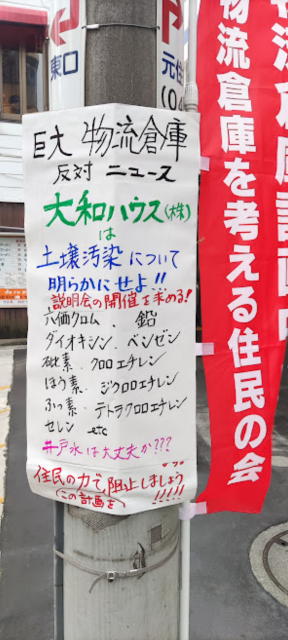 巨大 物流倉庫
反対 ニュース
大和ハウス(株)
は
土壌汚染について
明らかにせよ!!
説明会の開催を求める!
六価クロム、鉛
ダイオキシン・ベンゼン
砒素・クロロエチレン
ほう素・ジクロロエチレン
ふっ素・テトラクロロエチレン
セレン etc
井戸水は大丈夫か???
住民の力で阻止しましょう
(この計画を) !!!!!
物流倉庫を考える住民の会
東口